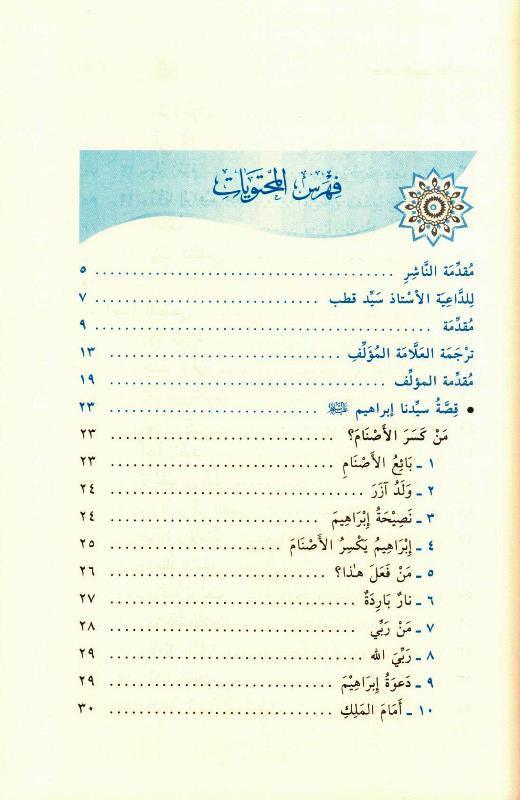 فِهْرِس المُحْتَوَيَاتِ
مُقدِّمَة النَّاشِرِ ........................................ ٥
لِلدَّاعِيَة الأسْتاذ سَيِّد قطب ........................................ ٧
مُقدِّمَة ........................................ ٩
ترْجَمَة العَلَّامَة المُؤَلِّفِ ........................................ ١٣
مُقدِّمة المؤلِّف ........................................ ١٩
• قِصَّةُ سيِّدنا إبراهيم عليه السلام ........................................ ٢٣
مَنْ كَسَرَ الأَصْنَامَ؟ ........................................ ٢٣
١ ـ بَائِعُ الأَصْنَامِ ........................................ ٢٣
٢ ـ وَلَدُ آزَرَ ........................................ ٢٤
٣ ـ نَصِيْحَةُ إِبْرَاهِيمَ ........................................ ٢٤
٤ ـ إِبْرَاهِيمُ يَكْسِرُ الأَصْنَامَ ........................................ ٢٥
٥ ـ مَنْ فَعَلَ هٰذا؟ ........................................ ٢٦
٦ ـ نارٌ بَارِدَةٌ ........................................ ٢٧
٧ ـ مَنْ رَبِّي ........................................ ٢٨
٨ ـ رَبِّيَ الله ........................................ ٢٩
٩ ـ دَعوَةُ إِبرَاهِيْمَ ........................................ ٢٩
١٠ ـ أَمَامَ المَلِكِ ........................................ ٣٠